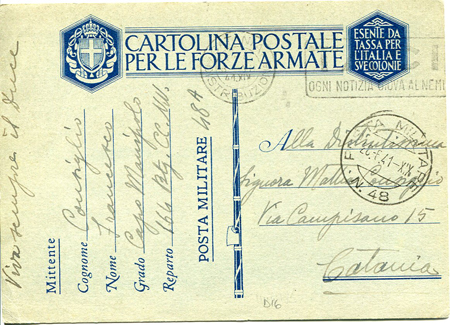 CARTOLINA POSTALE
PER LE FORZE ARMATE
ESENTE DA
TASSA PER
L'ITALIA E
SVE COLONIE
OGNI NOTIZIA GIOVA AL NEMI
DISTRIBUZIO
POSTA MILITARE
XIX
N. 48
Viva sempre il Duce
Mittente
Cognome Consiglio
Nome Francesco
Grado Capo Manipolo
Reparto 166 Btg CC.NN.
POSTA MILITARE 48 A
Alla
Signora Consiglio
Via Campisano 15
Catania
D16